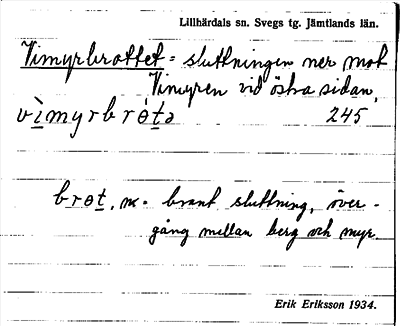 Lillhärdals sn. Svegs tg. Jämtlands län.
Vimyrbrottet = sluttningen ner mot
Vimyren vid östra sidan.
vìmyrbròtə 245
brot, m. brant sluttning, över-
gång mellan berg och myr.
Erik Eriksson 1934.